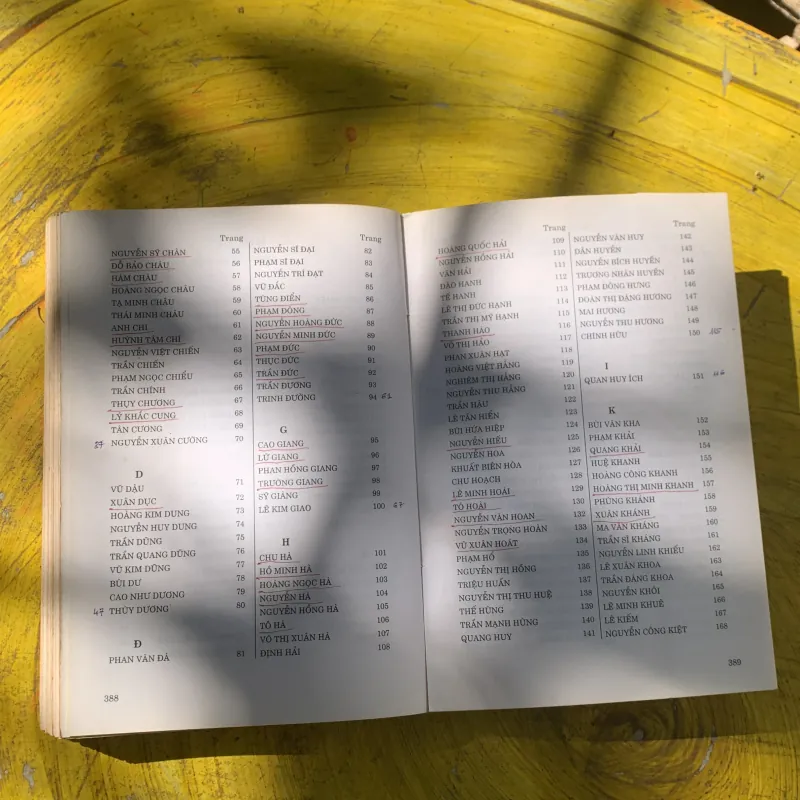 Trang
NGUYỄN SỸ CHÂN 55
ĐỖ BẢO CHÂU 56
HÀM CHÂU 57
HOÀNG NGỌC CHÂU 58
TẠ MINH CHÂU 59
THÁI MINH CHÂU 60
ANH CHI 61
HUỲNH TÂM CHÍ 62
NGUYỄN VIỆT CHIẾN 63
TRẦN CHIẾN 64
PHẠM NGỌC CHIỂU 65
TRẦN CHINH 66
THỤY CHƯƠNG 67
LÝ KHẮC CUNG 68
TÂN CƯƠNG 69
37 NGUYỄN XUÂN CƯỜNG 70
D
VŨ DẬU 71
XUÂN DỤC 72
HOÀNG KIM DUNG 73
NGUYỄN HUY DUNG 74
TRẦN DŨNG 75
TRẦN QUANG DŨNG 76
VŨ KIM DŨNG 77
BÙI DƯ 78
CAO NHƯ DƯƠNG 79
47 THÙY DƯƠNG 80
Đ
PHAN VĂN ĐÀ 81
Trang
NGUYỄN SĨ ĐẠI 82
PHẠM SĨ ĐẠI 83
NGUYỄN TRÍ ĐẠT 84
VŨ ĐẮC 85
TÙNG ĐIỂN 86
PHẠM ĐÔNG 87
NGUYỄN HOÀNG ĐỨC 88
NGUYỄN MINH ĐỨC 89
PHẠM ĐỨC 90
THỤC ĐỨC 91
TRẦN ĐỨC 92
TRẦN ĐƯƠNG 93
TRINH ĐƯỜNG 94
G
CAO GIANG 95
LỮ GIANG 96
PHAN HỒNG GIANG 97
TRƯỜNG GIANG 98
SỸ GIÀNG 99
LÊ KIM GIAO 100
H
CHU HÀ 101
HỒ MINH HÀ 102
HOÀNG NGỌC HÀ 103
NGUYÊN HÀ 104
NGUYỄN HỒNG HÀ 105
TÔ HÀ 106
VÕ THỊ XUÂN HÀ 107
ĐỊNH HẢI 108
388
Trang
HOÀNG QUỐC HẢI 109
NGUYỄN HỒNG HẢI 110
VÂN HẢI 111
ĐÀO HẠNH 112
TẾ HANH 113
LÊ THỊ ĐỨC HẠNH 114
TRẦN THỊ MỸ HẠNH 115
THANH HÀO 116
VÕ THỊ HẢO 117
PHAN XUÂN HẠT 118
HOÀNG VIỆT HẰNG 119
NGHIÊM THỊ HẰNG 120
NGUYỄN THU HẰNG 121
TRẦN HẬU 122
LÊ TẤN HIỂN 123
BÙI HỨA HIỆP 124
NGUYỄN HIẾU 125
NGUYỄN HOA 126
KHUẤT BIÊN HÒA 127
CHU HOẠCH 128
LÊ MINH HOÀI 129
TÔ HOÀI 130
NGUYỄN VĂN HOAN 132
NGUYỄN TRỌNG HOÀN 133
VŨ XUÂN HOÁT 134
PHẠM HỔ 135
NGUYỄN THỊ HỒNG 136
TRIỆU HUẤN 137
NGUYỄN THỊ THU HUỆ 138
THẾ HÙNG 139
TRẦN MẠNH HÙNG 140
QUANG HUY 141
Trang
NGUYỄN VĂN HUY 142
DÂN HUYỀN 143
NGUYỄN BÍCH HUYỀN 144
TRƯƠNG NHÂN HUYỀN 145
PHẠM ĐÔNG HƯNG 146
ĐOÀN THỊ ĐẶNG HƯƠNG 147
MAI HƯƠNG 148
NGUYỄN THU HƯƠNG 149
CHÍNH HỮU 150
I
QUAN HUY ÍCH 151
K
BÙI VĂN KHA 152
PHẠM KHẢI 153
QUANG KHẢI 154
HUỆ KHANH 155
HOÀNG CÔNG KHANH 156
HOÀNG THỊ MINH KHANH 157
PHÙNG KHÁNH 158
XUÂN KHÁNH 159
MA VĂN KHÁNG 160
TRẦN SĨ KHÁNG 161
NGUYỄN LINH KHIẾU 162
LÊ XUÂN KHOA 163
TRẦN ĐĂNG KHOA 164
NGUYỄN KHÔI 165
LÊ MINH KHUÊ 166
LÊ KIỂM 167
NGUYỄN CÔNG KIỆT 168
389